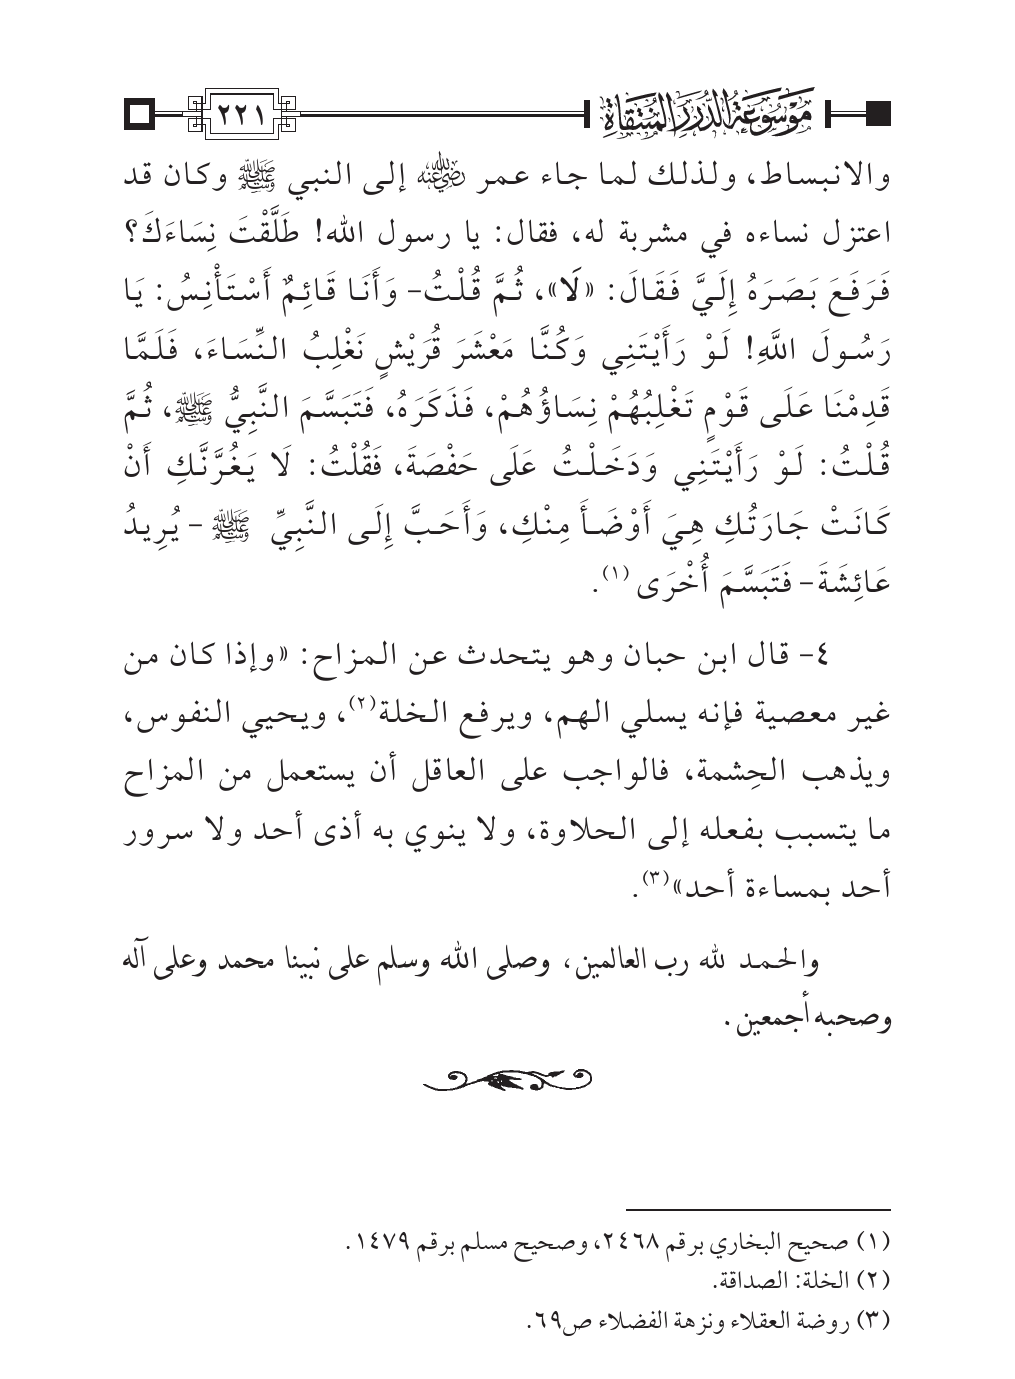 موسوعة الدرر المنتقاة
٢٢١
والانبساط، ولذلك لما جاء عمر رضي الله عنه إلى النبي ﷺ وكان قد
اعتزل نساءه في مشربة له، فقال: يا رسول الله! طَلَّقْتَ نِسَاءَكَ؟
فَرَفَعَ بَصَرَهُ إِلَيَّ فَقَالَ: «لَا»، ثُمَّ قُلْتُ- وَأَنَا قَائِمٌ أَسْتَأْنِسُ: يَا
رَسُولَ اللَّهِ! لَوْ رَأَيْتَنِي وَكُنَّا مَعْشَرَ قُرَيْشٍ نَغْلِبُ النِّسَاءَ، فَلَمَّا
قَدِمْنَا عَلَى قَوْمٍ تَغْلِبُهُمْ نِسَاؤُهُمْ، فَذَكَرَهُ، فَتَبَسَّمَ النَّبِيُّ ﷺ، ثُمَّ
قُلْتُ: لَوْ رَأَيْتَنِي وَدَخَلْتُ عَلَى حَفْصَةَ، فَقُلْتُ: لَا يَغُرَّنَّكِ أَنْ
كَانَتْ جَارَتُكِ هِيَ أَوْضَأَ مِنْكِ، وَأَحَبَّ إِلَى النَّبِيِّ ﷺ - يُرِيدُ
عَائِشَةَ- فَتَبَسَّمَ أُخْرَى (١).
٤- قال ابن حبان وهو يتحدث عن المزاح: «وإذا كان من
غير معصية فإنه يسلي الهم، ويرفع الخلة(٢)، ويحيي النفوس،
ويذهب الحِشمة، فالواجب على العاقل أن يستعمل من المزاح
ما يتسبب بفعله إلى الحلاوة، ولا ينوي به أذى أحد ولا سرور
أحد بمساءة أحد»(٣).
والحمد لله رب العالمين، وصلى الله وسلم على نبينا محمد وعلى آله
وصحبه أجمعين.
(١) صحيح البخاري برقم ٢٤٦٨، وصحيح مسلم برقم ١٤٧٩.
(٢) الخلة: الصداقة.
(٣) روضة العقلاء ونزهة الفضلاء ص٦٩.